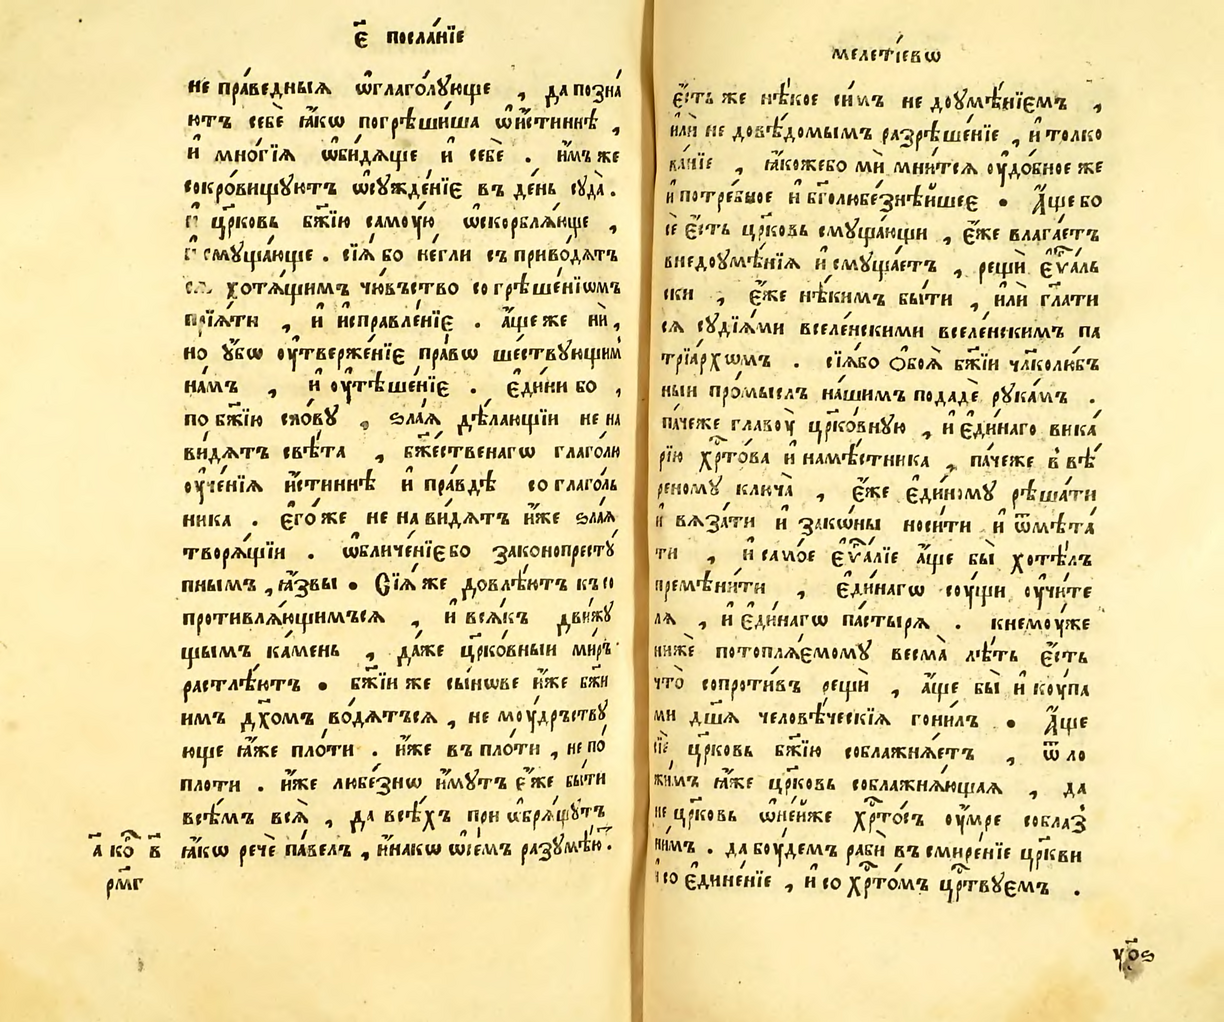 є҃ посла́нїе
не пра́ведныѧ ѡ҆глаго́лꙋюще , да позна́
ютъ себѐ ꙗ҆́кѡ погрѣши́ша ѡ҆и҆́стиннѣ ,
и҆ мнѡ́гїѧ ѡ҆би́дѧще и҆ себѐ . и҆́мъ же
сокро́вищꙋютъ ѡ҆сꙋжде́нїе въ де́нь сꙋда̀ .
и҆ цр҃ковь бж҃їю самоу́ю ѡ҆скорблѧ́юще ,
и҆ смꙋща́юще . сїѧ́ бо не́гли съ приво́дѧтъ
хотѧ́щимъ чю́въство согрѣше́нїѡмъ
прїѧ́ти , и҆ исправле́нїе . а҆́ще же ни̑ ,
но ᲂу҆́бѡ ᲂу҆тверже́нїе пра́вѡ ше́ствꙋющимъ
на́мъ , и҆ ᲂу҆тѣше́нїе . є҆ди́ни бо ,
по бж҃їю сло́вꙋ , ѕла́ѧ дѣ́лающїи не на
ви́дѧтъ свѣ́та , бж҃е́ственагѡ глаго́лю
ᲂу҆че́нїѧ и҆́стиннѣ и҆ пра́вдѣ соглаго́ль
ника . є҆го́ же не на ви́дѧтъ и҆́же ѕла́ѧ
творѧ́щїи . ѡ҆бличе́нїе бо законопрестꙋ́
пнымъ , ꙗ҆́звы . Сїѧ̀ же довлѣ́ютъ къ со
противлѧ́ющимъсѧ , и҆ всѧ́къ дви́жꙋ
щымъ ка́мень , да́же цр҃ко́вныи ми́ръ
растлѣ́ютъ . бж҃їи же сы́нѡве и҆́же бж҃їи
имъ дх҃омъ во́дѧтъсѧ , не моу́дръствꙋ
юще ꙗ҆́же пло́ти . и҆́же въ пло́ти , не по́
плоти . и҆́же любе́знѡ и҆́мꙋтъ є҆́же бы́ти
всѣ́мъ всѧ̀ , да всѣ́хъ прїѡбрѧ́щꙋтъ
ꙗ҆́кѡ рече́ па́велъ , и҆́накѡ ѡ҆се́мъ разꙋмѣ́ю .
а҃ ко в҃
рм҃г
меле́тїевѡ
є҆́сть же нѣ́кое си́мъ не доꙋмѣ́нїемъ ,
и҆лѝ не довѣ́домымъ разрѣше́нїе , и҆ толко
ва́нїе , ꙗ҆́коже бо мѝ мни́тсѧ ᲂу҆до́бное же
и҆ потре́бное и҆ бг҃олюбе́знѣйшее . А҆́ще бо
сѐ є҆́сть цр҃ковь смꙋща́ющи , є҆́же влага́етъ
внедоꙋмѣ́нїѧ и҆ смꙋща́етъ , рещѝ є҆ѵⷢ҇а́ль
ски , є҆́же нѣ́кимъ бы́ти , и҆лѝ гл҃ати
сѧ сꙋдїѧ́ми вселе́нскими вселе́нскимъ па
трїа́рхѡмъ . сїѧ́бо ѻ҆боѧ̀ бж҃їи чл҃колю́бъ
ныи про́мыслъ на́шимъ подадѐ рꙋка́мъ .
па́чеже главоу̀ цр҃ко́внꙋю , и҆ є҆ди́наго вика́
рїю хр҃то́ва и҆ намѣ́стника , па́чеже в вѣ́
реномꙋ ключа̀ , є҆́же є҆ди́номꙋ рѣша́ти
и҆ вѧза́ти и҆ зако́ны носи́ти и҆ ѿмѣта́
ти , и҆ само́е є҆ѵⷢ҇а́лїе а҆́ще бы̀ хотѣ́лъ
премѣни́ти , є҆ди́нагѡ соу́щи ᲂу҆чи́те
лѧ , и҆ є҆ди́нагѡ па́стырѧ . кнемоу́же
ниже́ потоплѧ́емомꙋ весма̀ лѣ́ть є҆́сть
что̀ сопроти́въ рещѝ , а҆́ще бы̀ и҆ коу́па
ми дш҃а человѣ́ческїѧ гони́лъ . А҆́ще
сїѐ цр҃ковь бж҃їю соблажнѧ́етъ , ѿ ло
жи́мъ ꙗ҆́же цр҃ковь соблажнѧ́ющаѧ , да
не цр҃ковь ѡ҆не́йже хр҃то́съ ᲂу҆́мре соблаз
ни́мъ . да боу́демъ рабѝ въ смире́нїе цр҃кви
и҆ со є҆дине́нїе , и҆ со хр҃то́мъ цр҃твꙋемъ .
ѵ҃оѕ